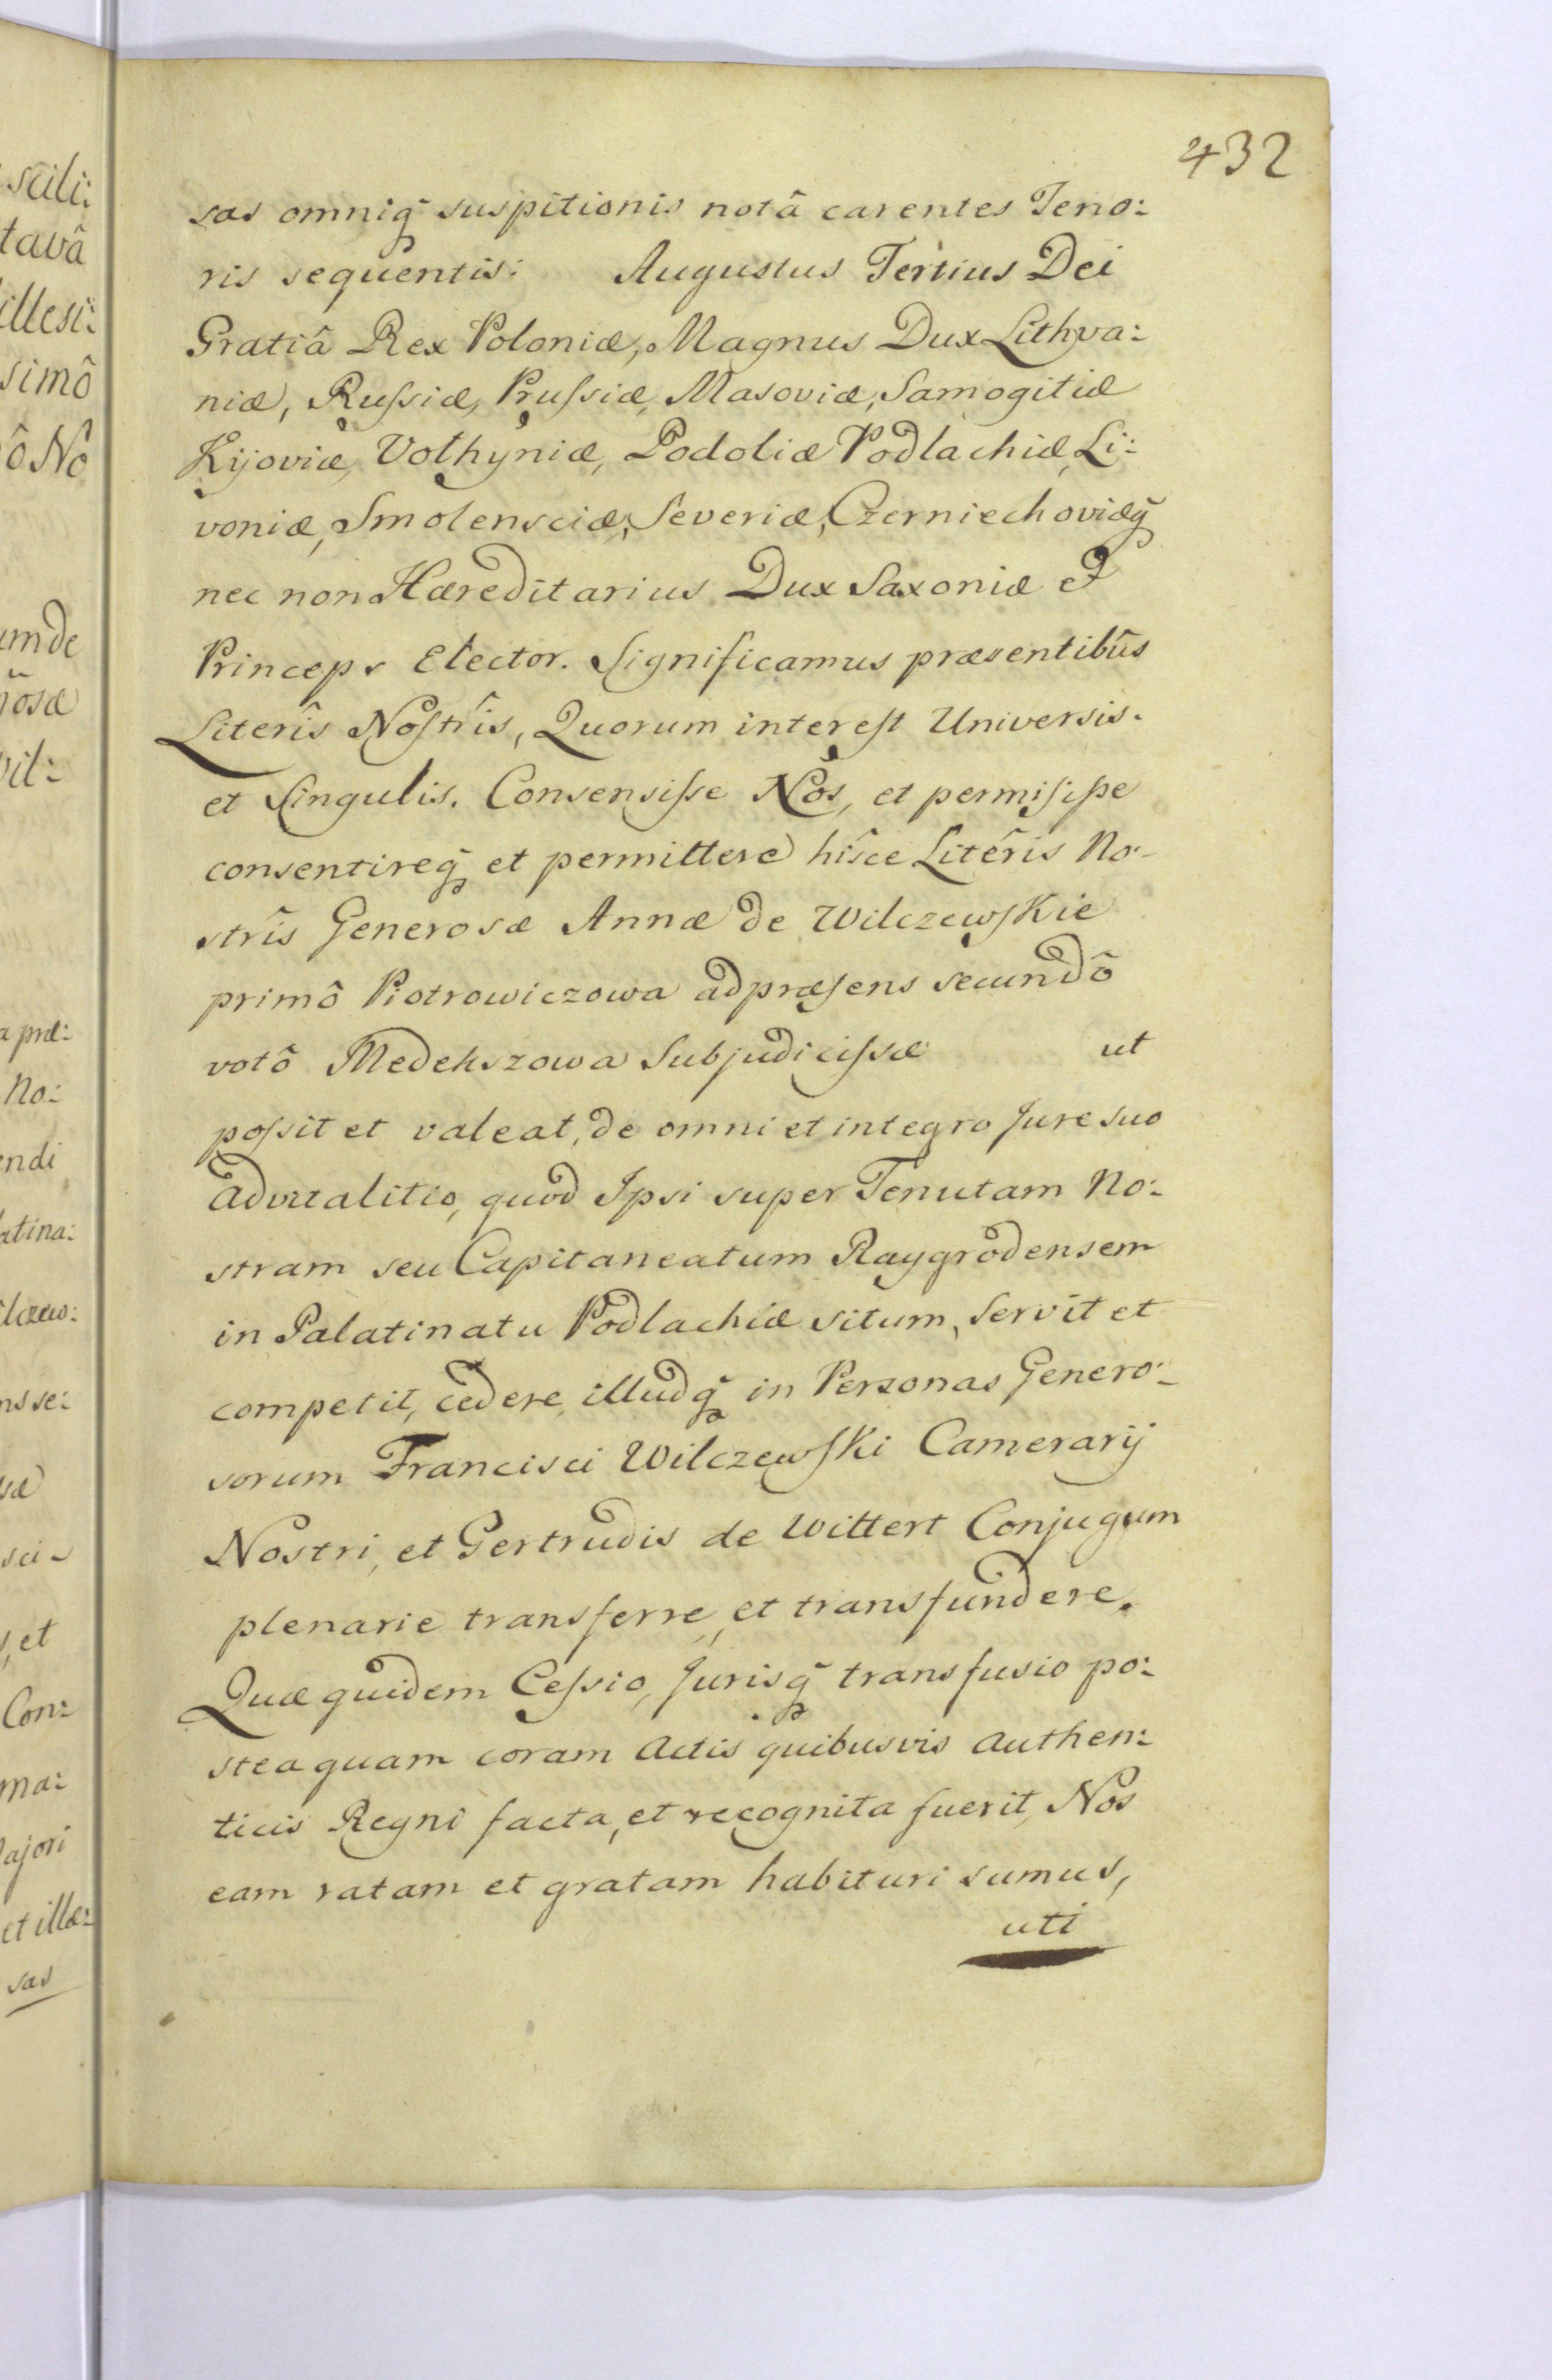 432
sas omniq̃ suspitionis notâ carentes Teno:
ris sequentis: Augustus Tertius Dei
Gratiâ Rex Poloniæ, Magnus Dux Lithva:
niæ, Ruſsiæ, Pruſsiæ, Masoviæ, Samogitiæ
Kijoviæ, Volhyniæ, Podoliæ Podlachiæ, Li:
voniæ, Smolensciæ, Severiæ, Czerniechoviæq̃
nec non Hæreditarius Dux Saxoniæ et
Princeps Elector. Significamus præsentibûs
Literîs Noſtrîs, Quorum intereſt Universis.
et Singulis. Consensiſse Nos, et permiſiſse
consentireq̃ et permittere hîsce Literîs No:
strîs Generosæ Annæ de Wilczewſkie
primô Piotrowiczowa ad præſens secundô
votô Medekszowa Subjudiciſsæ ut
poſsit et valeat, de omni et integro Jure suo
advitalitio, quod Ipsi super Tenutam No:
stram seu Capitaneatum Raygrodensem
in Palatinatu Podlachiæ situm, servit et
competit, cedere, illudq̃ in Personas Genero:
sorum Francisci Wilczewſki Camerarij
Nostri, et Gertrudis de Wittert Conjugum
plenarie transferre, et transfundere.
Quæ quidem Ceſsio, Jurisq̃ transfusio po:
steaquam coram Actis quibusvis Authen:
ticis Regni facta, et recognita fuerit, Nos
eam ratam et gratam habituri sumus,
uti
scili:
tavâ
illesi:
simô
ô No
um de
vil:
a præ:
No:
endi
latina:
ilczew:
ns se:
sæ
sci
, et
Con:
ma:
Majori
et illæ:
sas